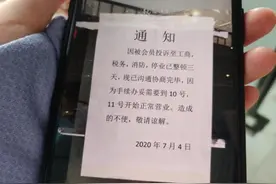 通 知
因被会员投诉至工商,
税务,消防,停业已整顿三
天,现已沟通协商完毕,因
为手续办妥需要到 10 号,
11 号开始正常营业,造成的
不便,敬请谅解。
2020 年 7 月 4 日